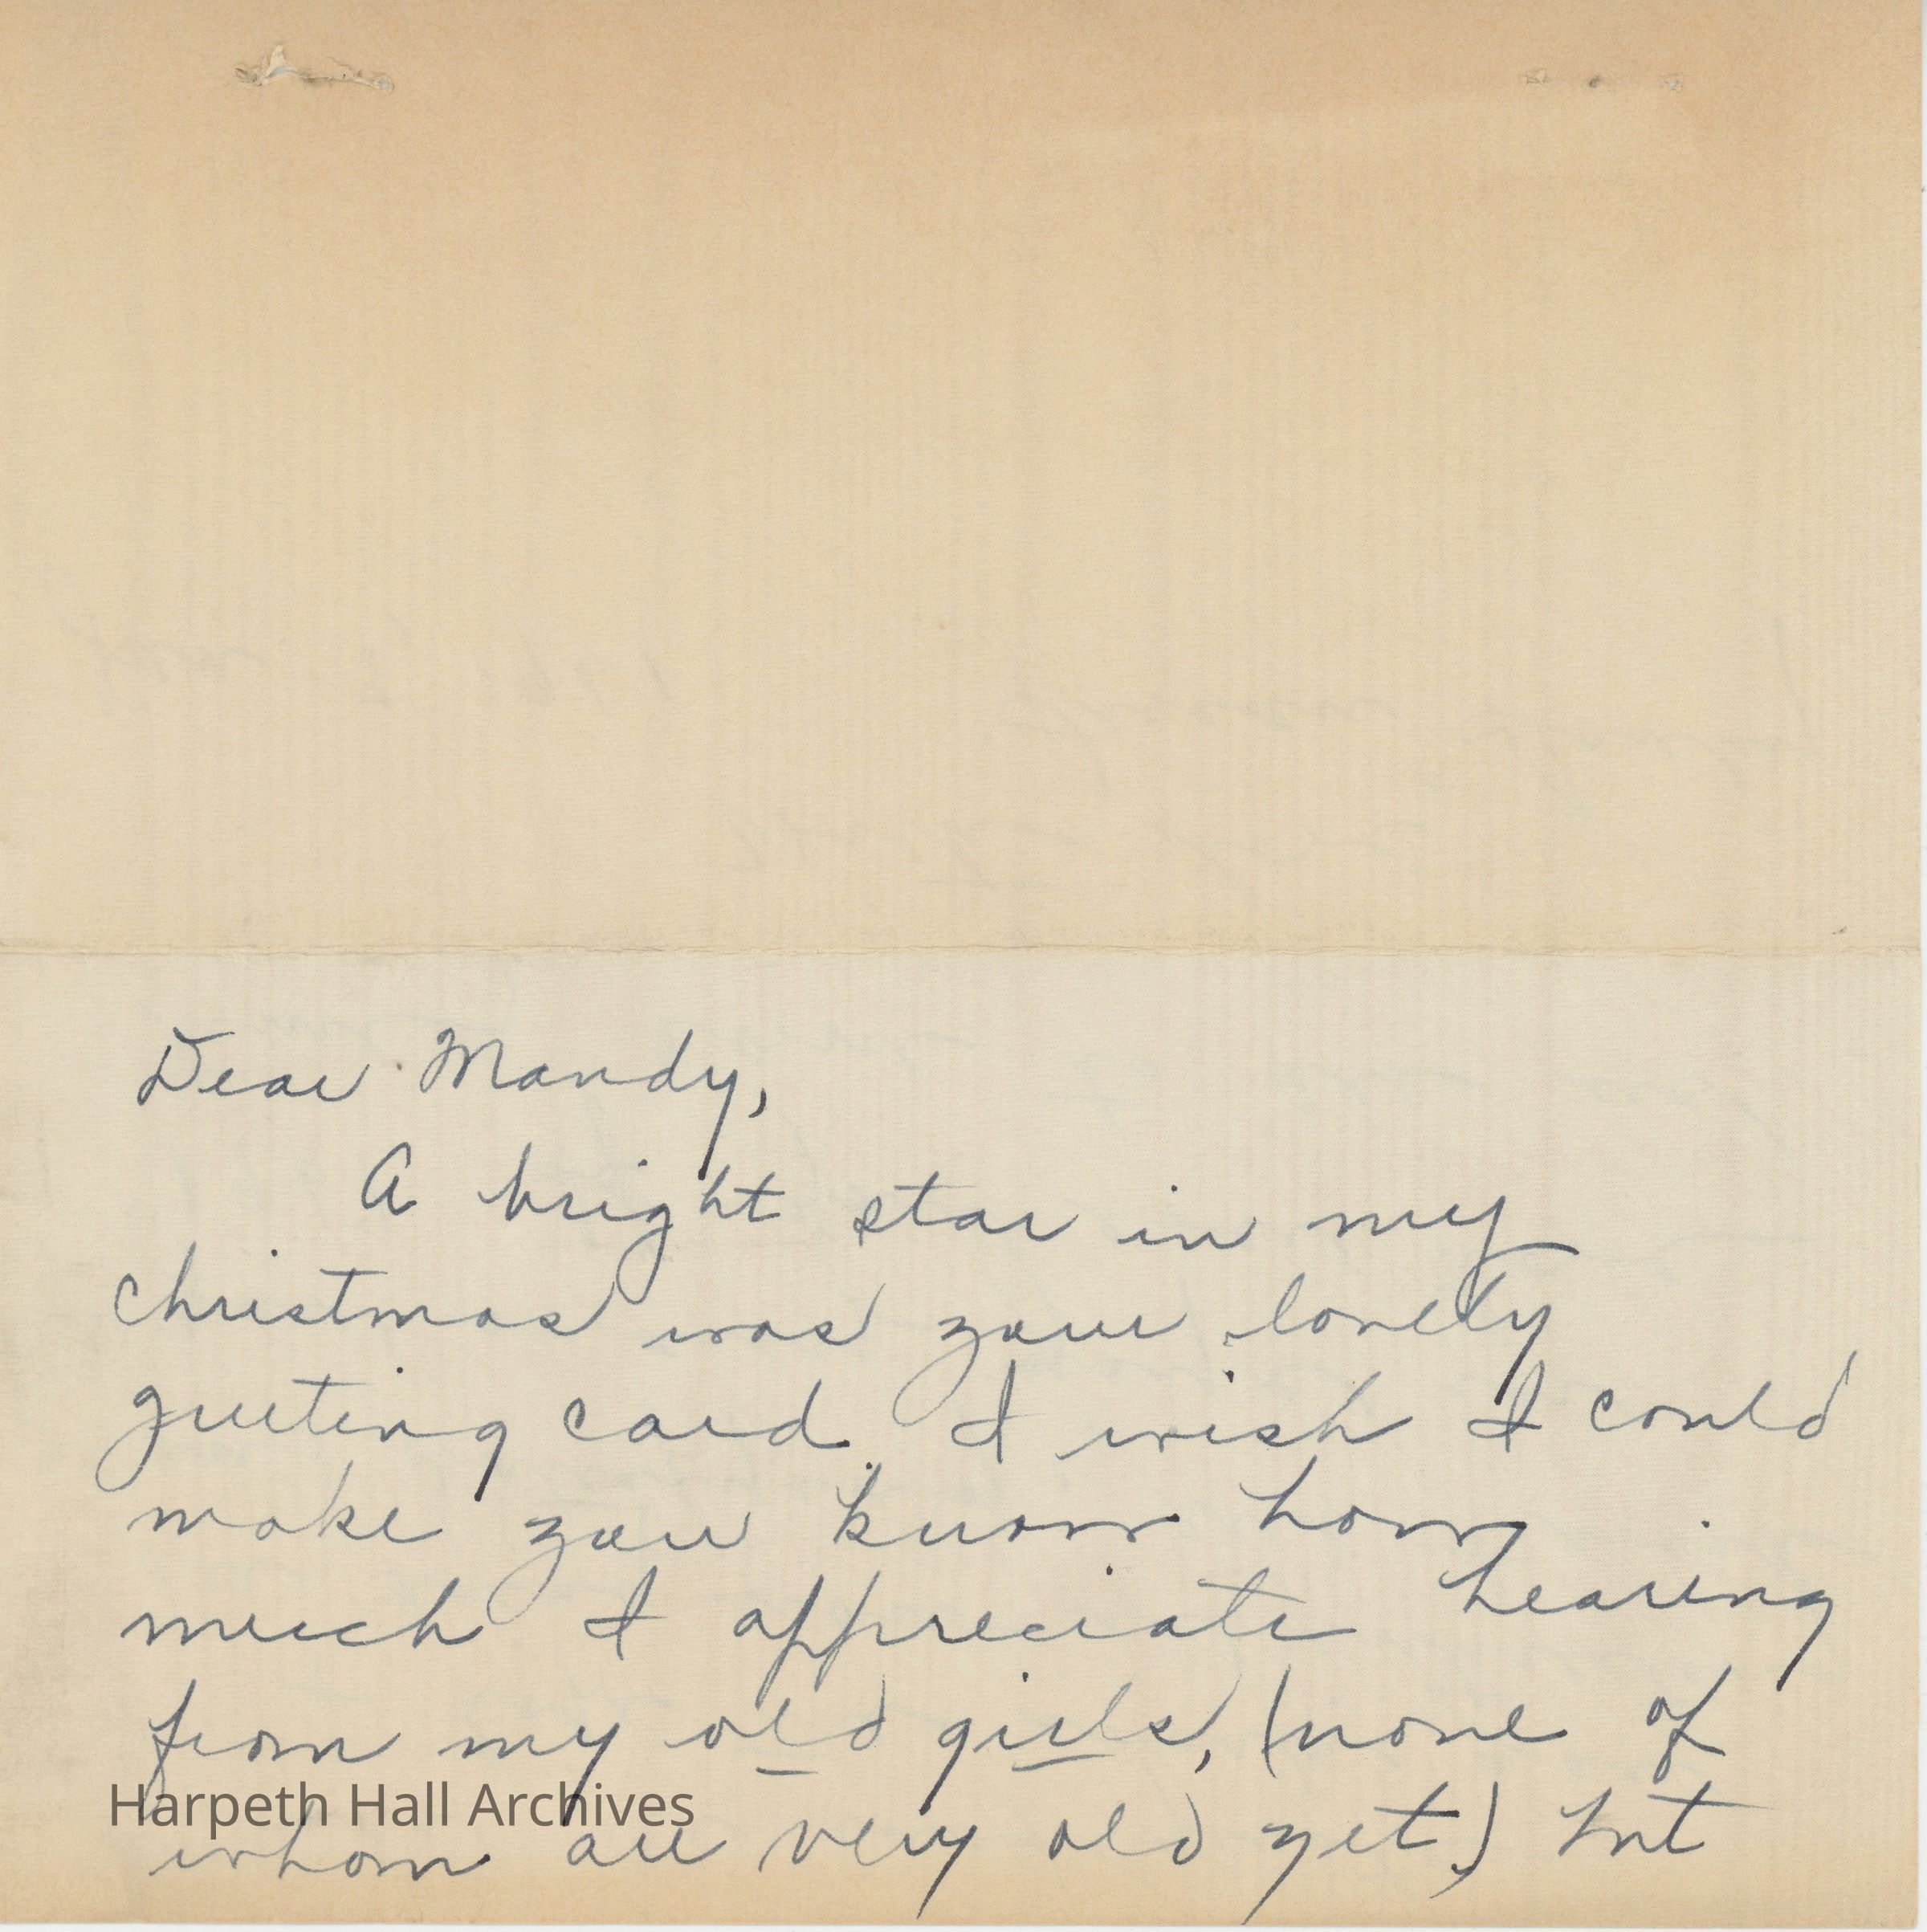 Dear Mandy,
A bright star in my
Christmas was your lovely
greeting card. I wish I could
make you know how
much I appreciate hearing
from my old girls, (none of
Harpeth Hall Archives
whom are very old yet,) but